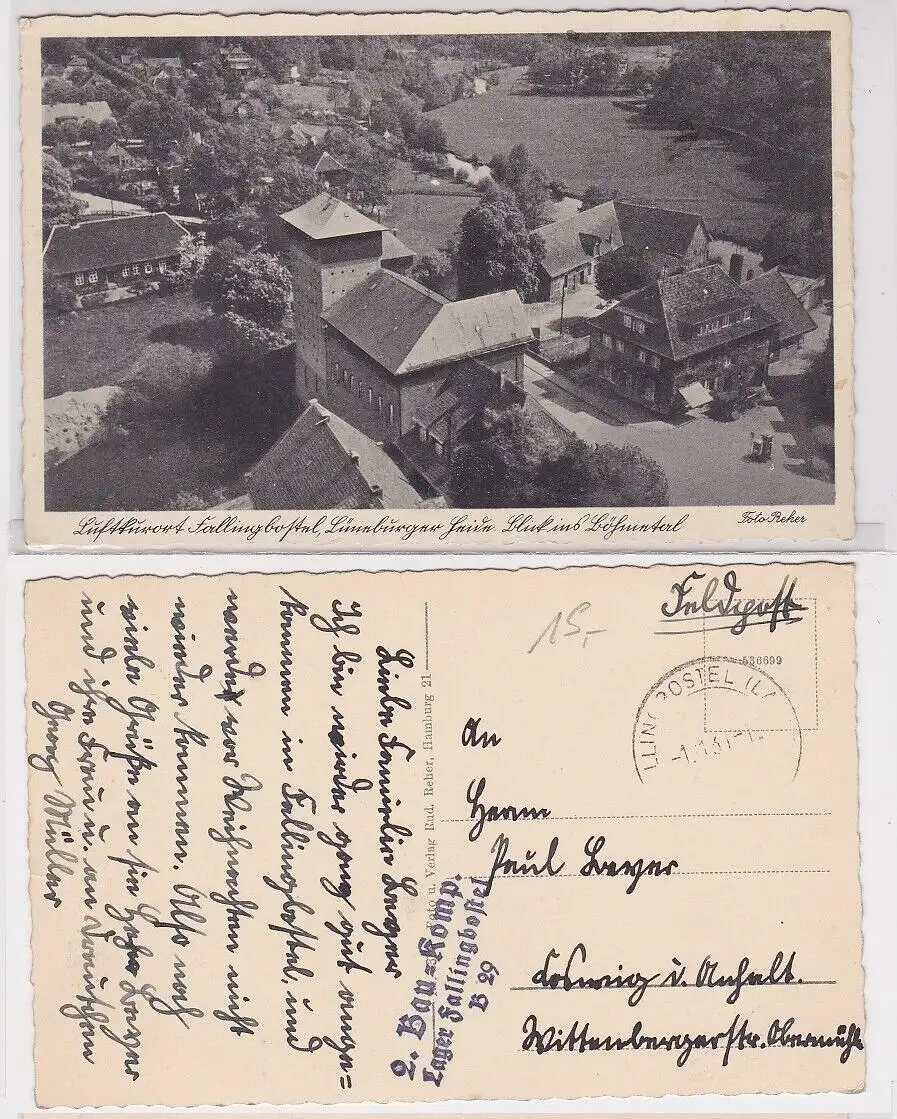 Luftkurort Fallingbostel, Lüneburger Heide. Blick ins Böhmetal
Foto Reher
Liebe Familie Beyer
Ich bin wieder ganz gut ange=
kommen in Fallingbostel, und
werde vor Weihnachten nicht
wieder kommen. Also noch
viele Grüße an sie Herr Beyer
und ihre Frau u. an Trautchen
Georg Müller
Foto u. Verlag Rud. Reher, Hamburg 21
2. Bau=Komp.
Lager Fallingbostel
B 29
15,-
Feldpost
536699
LLINGBOSTEL (L
An
Herrn
Paul Beyer
Coswig i. Anhalt.
Wittenbergerstr. Obermühle